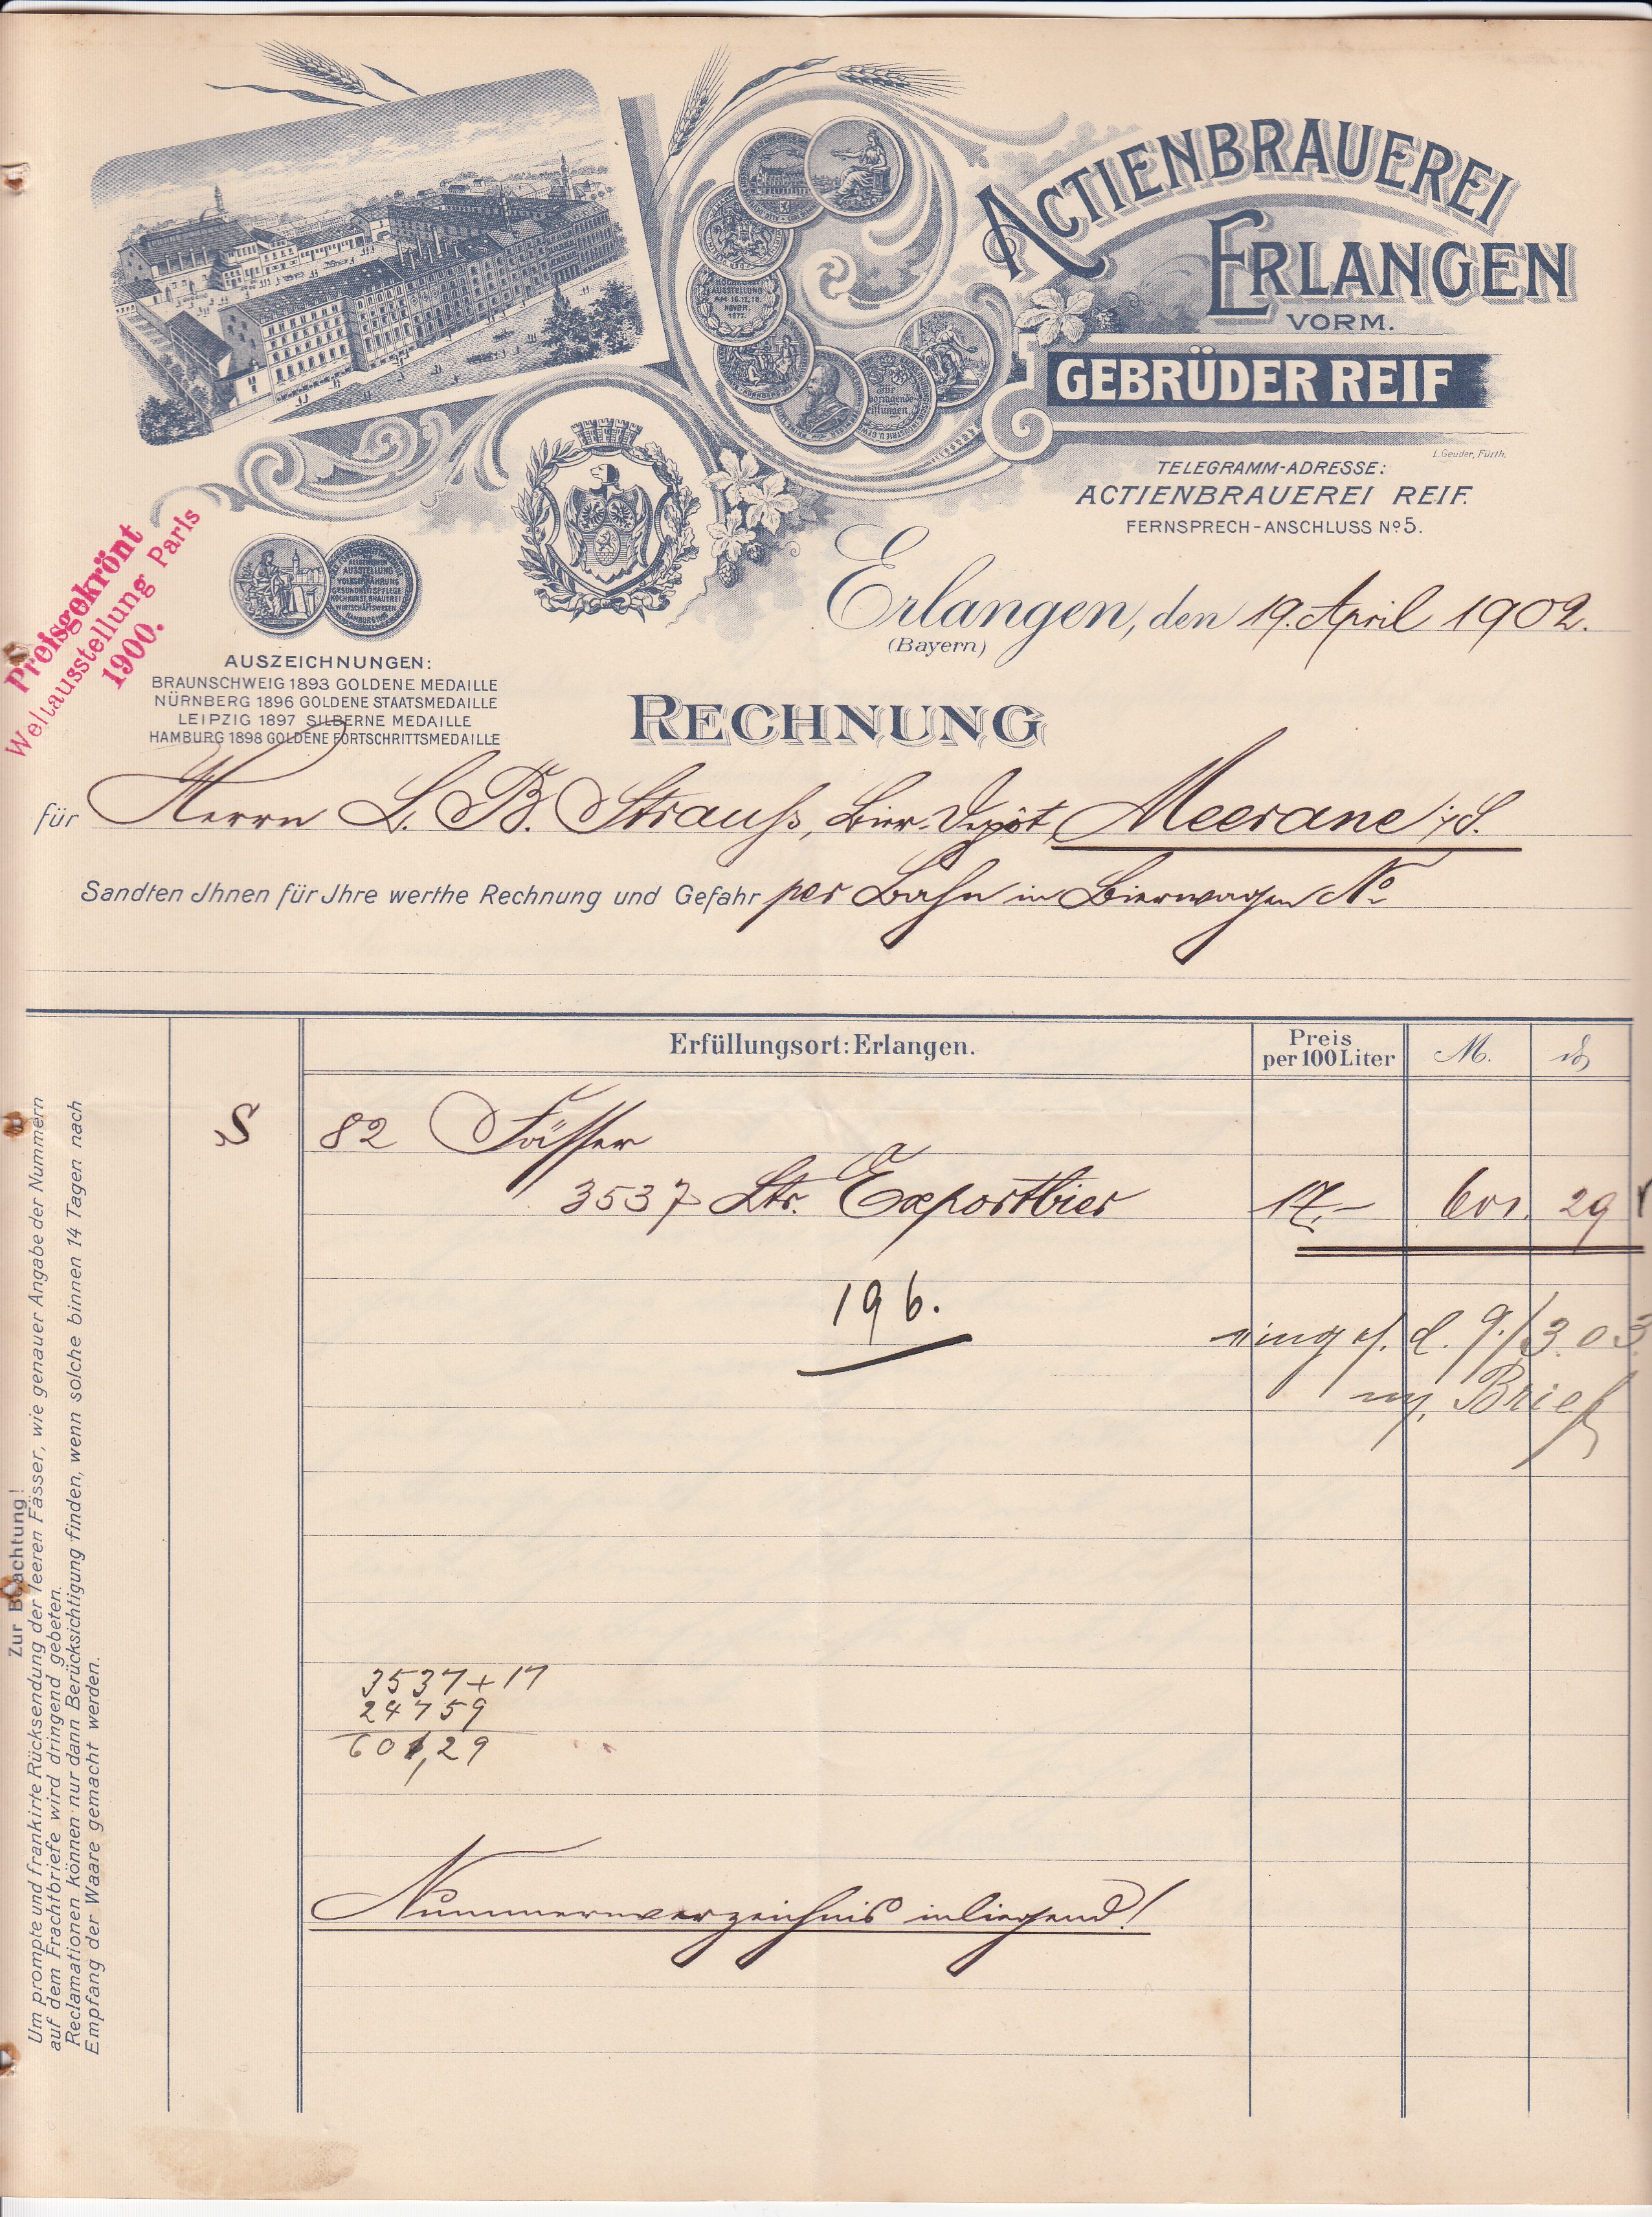 ACTIENBRAUEREI
ERLANGEN
VORM.
GEBRÜDER REIF
L. Geuder, Fürth.
TELEGRAMM-ADRESSE:
ACTIENBRAUEREI REIF.
FERNSPRECH-ANSCHLUSS No 5.
KOCHKUNST
AUSSTELLUNG
AM 16. 17. 18.
NOVBR.
1877.
ALLGEMEINEN
AUSSTELLUNG
VOLKSERNÄHRUNG
GESUNDHEITSPFLEGE
KOCHKUNST, BRAUEREI
WIRTSCHAFTSWESEN
HAMBURG 1898
Preisgekrönt
Weltausstellung Paris
1900.
Erlangen, den 19. April 1902.
(Bayern)
AUSZEICHNUNGEN:
BRAUNSCHWEIG 1893 GOLDENE MEDAILLE
NÜRNBERG 1896 GOLDENE STAATSMEDAILLE
LEIPZIG 1897 SILBERNE MEDAILLE
HAMBURG 1898 GOLDENE FORTSCHRITTSMEDAILLE
RECHNUNG
für Herrn L. B. Strauß, Bier-Depôt, Meerane i/S.
Sandten Ihnen für Ihre werthe Rechnung und Gefahr per Bahn in Bierwagen No
Erfüllungsort: Erlangen. Preis per 100 Liter M. ₰
S 82 Fässer
3537 Ltr. Exportbier 17.- 601. 29
196.
d. 9./3.03
Brief
3537 + 17
24759
601,29
Nummernverzeichnis inliegend!
Zur Beachtung!
Um prompte und frankirte Rücksendung der leeren Fässer, wie genauer Angabe der Nummern
auf dem Frachtbriefe wird dringend gebeten.
Reclamationen können nur dann Berücksichtigung finden, wenn solche binnen 14 Tagen nach
Empfang der Waare gemacht werden.